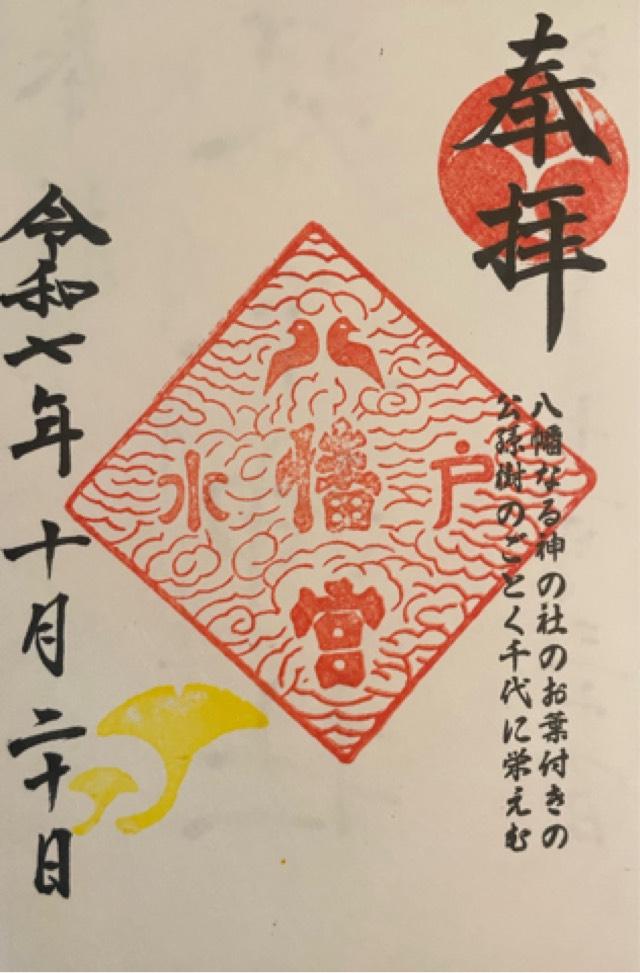 奉拝
八幡なる神の社のお葉付きの
公孫樹のごとく千代に栄えむ
水戸
八幡宮
令和七年十月二十日